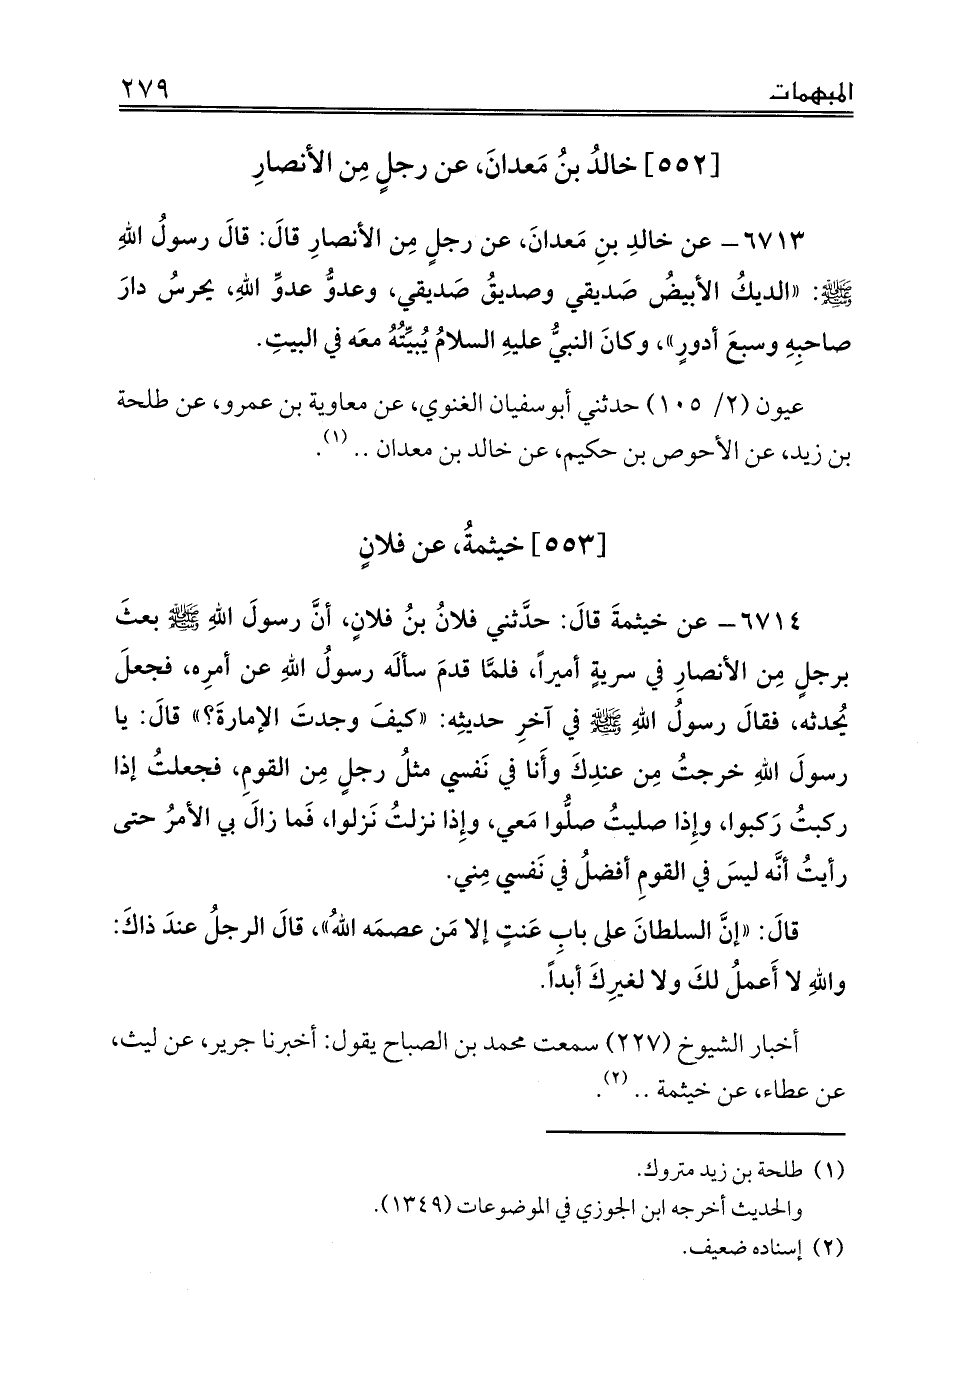 المبهمات ٢٧٩
[٥٥٢] خالدُ بنُ مَعدانَ، عن رجلٍ مِن الأنصارِ
٦٧١٣ – عن خالدِ بنِ مَعدانَ، عن رجلٍ مِن الأنصارِ قالَ: قالَ رسولُ اللهِ
ﷺ: «الديكُ الأبيضُ صَديقي وصديقُ صَديقي، وعدوُّ عدوِّ اللهِ، يحرسُ دارَ
صاحبِهِ وسبعَ أدورٍ»، وكانَ النبيُّ عليهِ السلامُ يُبيِّتُهُ معَه في البيتِ.
عيون (٢/ ١٠٥) حدثني أبو سفيان الغنوي، عن معاوية بن عمرو، عن طلحة
بن زيد، عن الأحوص بن حكيم، عن خالد بن معدان .. (١).
[٥٥٣] خيثمةُ، عن فلانٍ
٦٧١٤ – عن خيثمةَ قالَ: حدَّثني فلانُ بنُ فلانٍ، أنَّ رسولَ اللهِ ﷺ بعثَ
برجلٍ مِن الأنصارِ في سريةٍ أميراً، فلمَّا قدمَ سألَه رسولُ اللهِ عن أمرِه، فجعلَ
يُحدثه، فقالَ رسولُ اللهِ ﷺ في آخرِ حديثِه: «كيفَ وجدتَ الإمارةَ؟» قالَ: يا
رسولَ اللهِ خرجتُ مِن عندِكَ وأنا في نَفسي مثلُ رجلٍ مِن القومِ، فجعلتُ إذا
ركبتُ رَكبوا، وإذا صليتُ صلُّوا مَعي، وإذا نزلتُ نَزلوا، فَما زالَ بي الأمرُ حتى
رأيتُ أنَّه ليسَ في القومِ أفضلُ في نَفسي مِني.
قالَ: «إنَّ السلطانَ على بابِ عَنتٍ إلا مَن عصمَه اللهُ»، قالَ الرجلُ عندَ ذاكَ:
واللهِ لا أَعملُ لكَ ولا لغيرِكَ أبداً.
أخبار الشيوخ (٢٢٧) سمعت محمد بن الصباح يقول: أخبرنا جرير، عن ليث،
عن عطاء، عن خيثمة .. (٢).
(١) طلحة بن زيد متروك.
والحديث أخرجه ابن الجوزي في الموضوعات (١٣٤٩).
(٢) إسناده ضعيف.